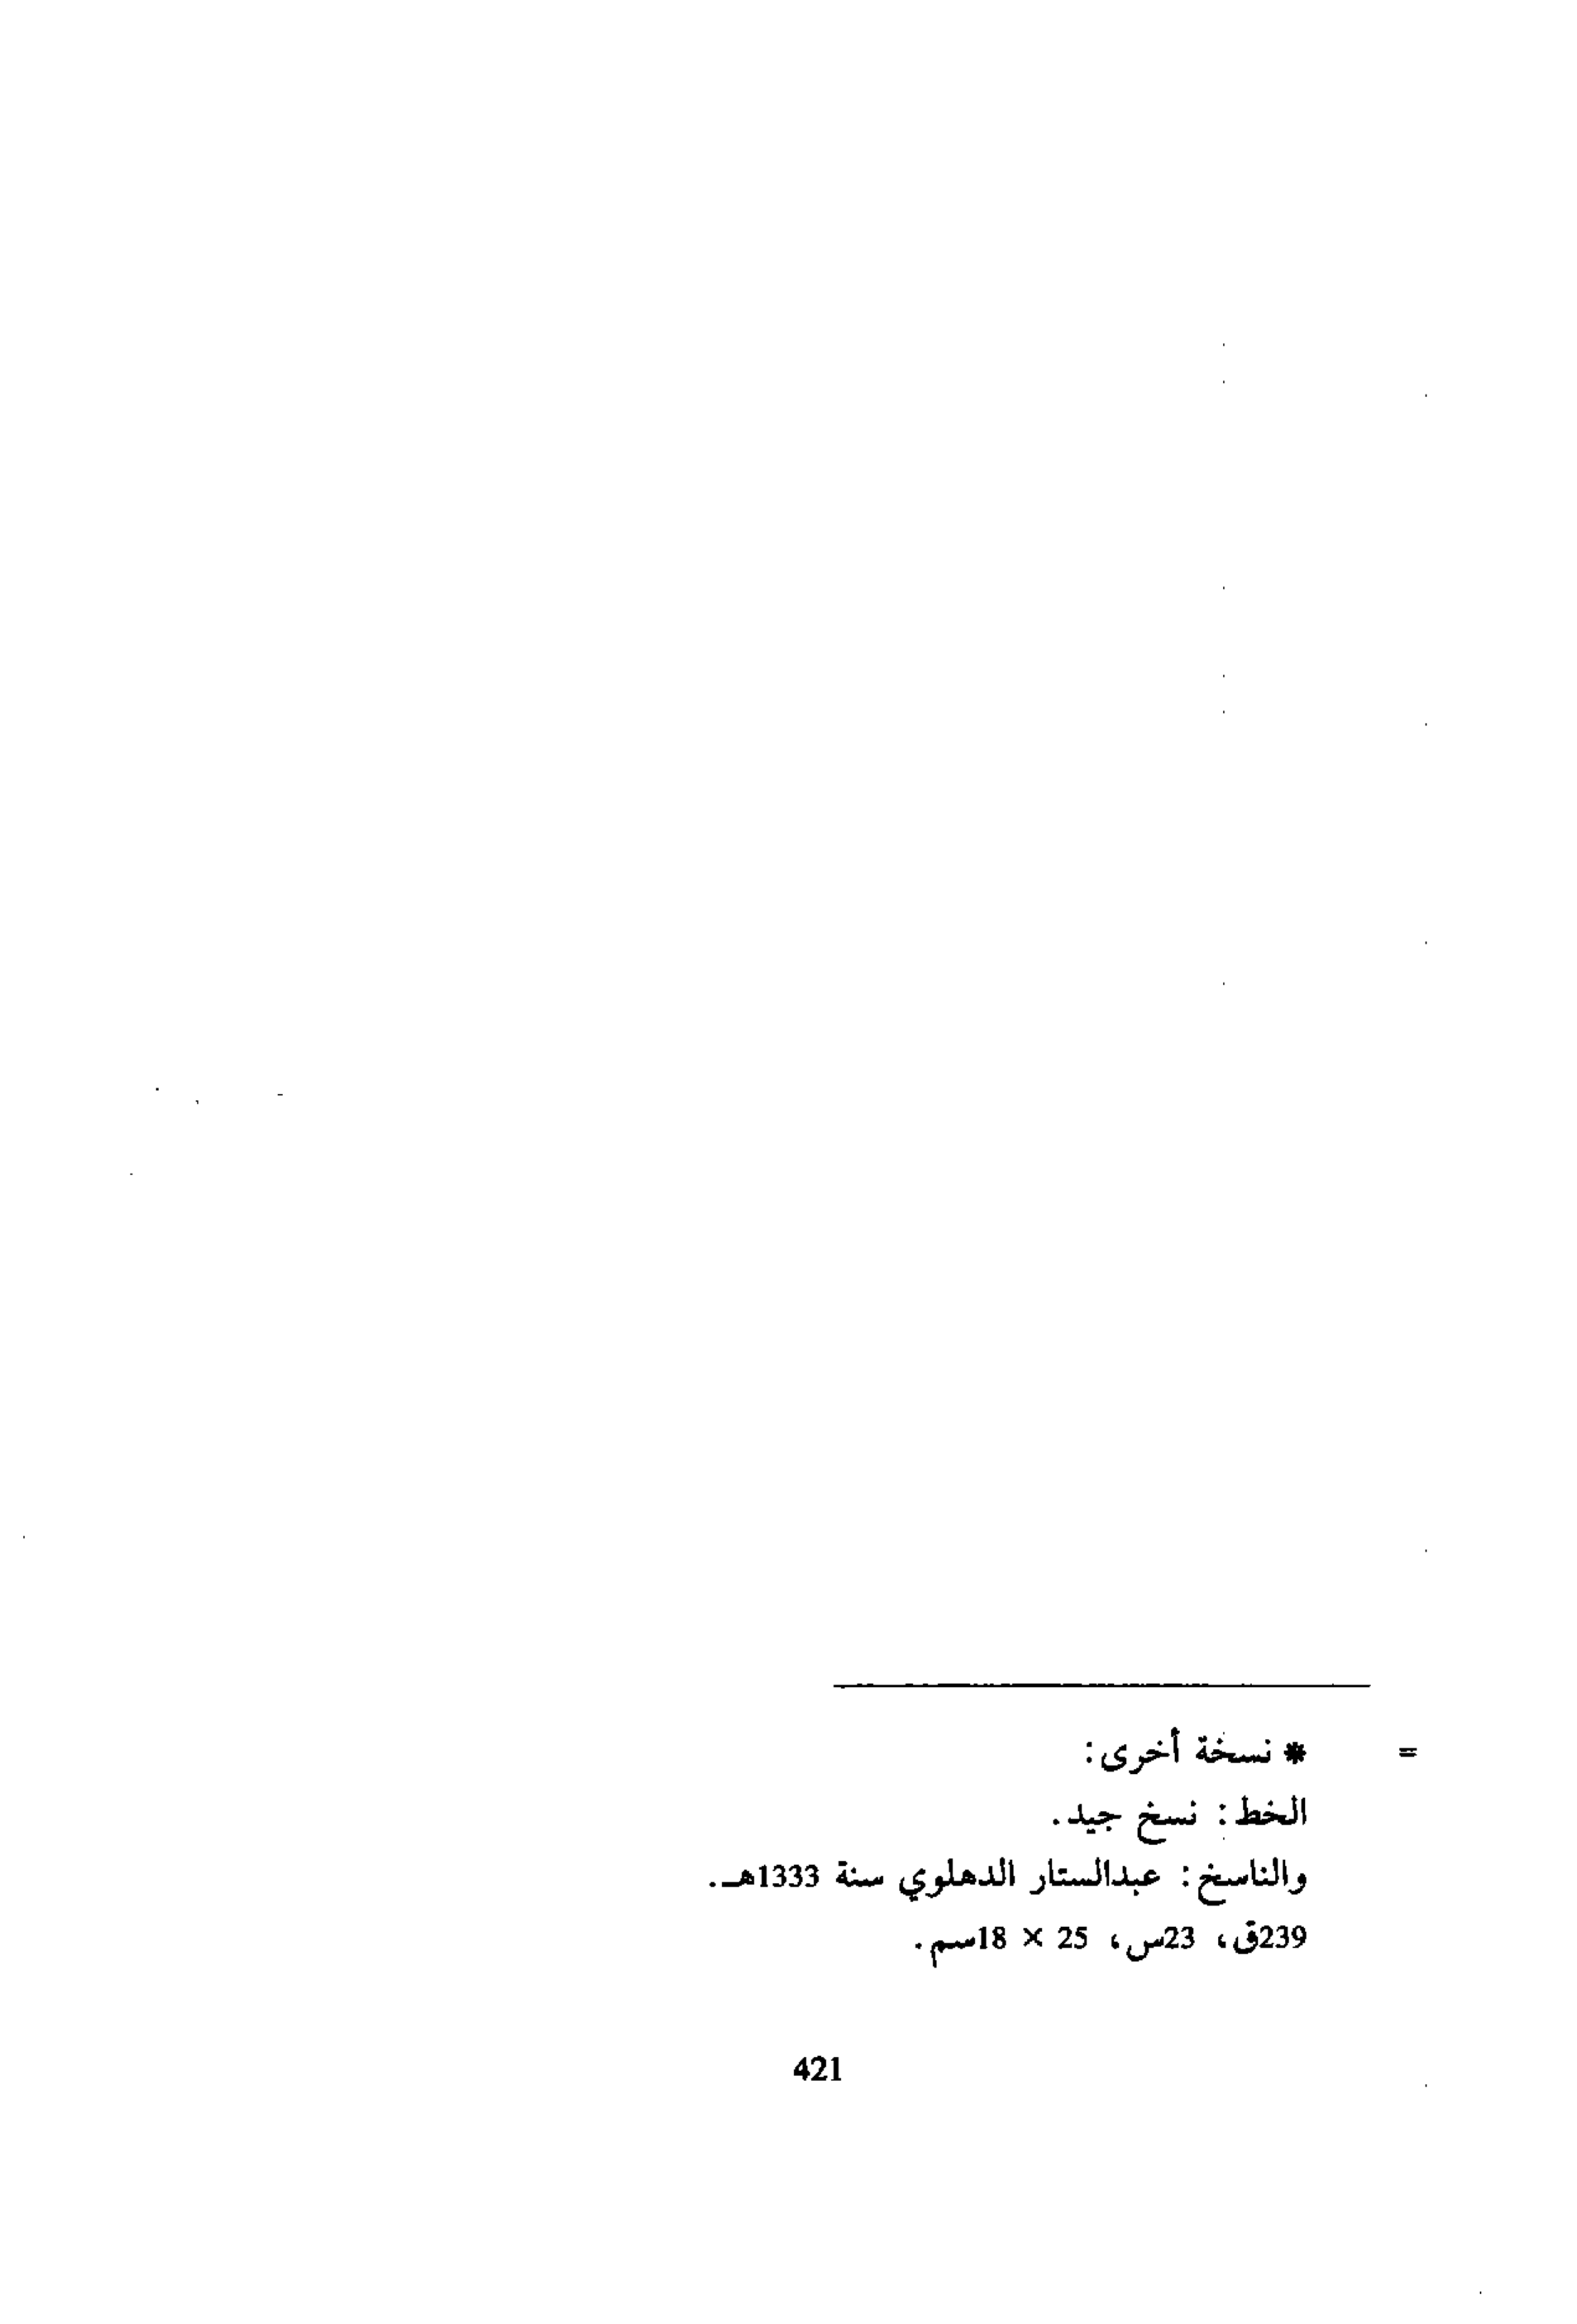 = * نسخة أخرى:
الخط: نسخ جيد.
والناسخ: عبدالستار الدهلوي سنة 1333هـ.
239ق، 23س، 25 × 18سم.
421